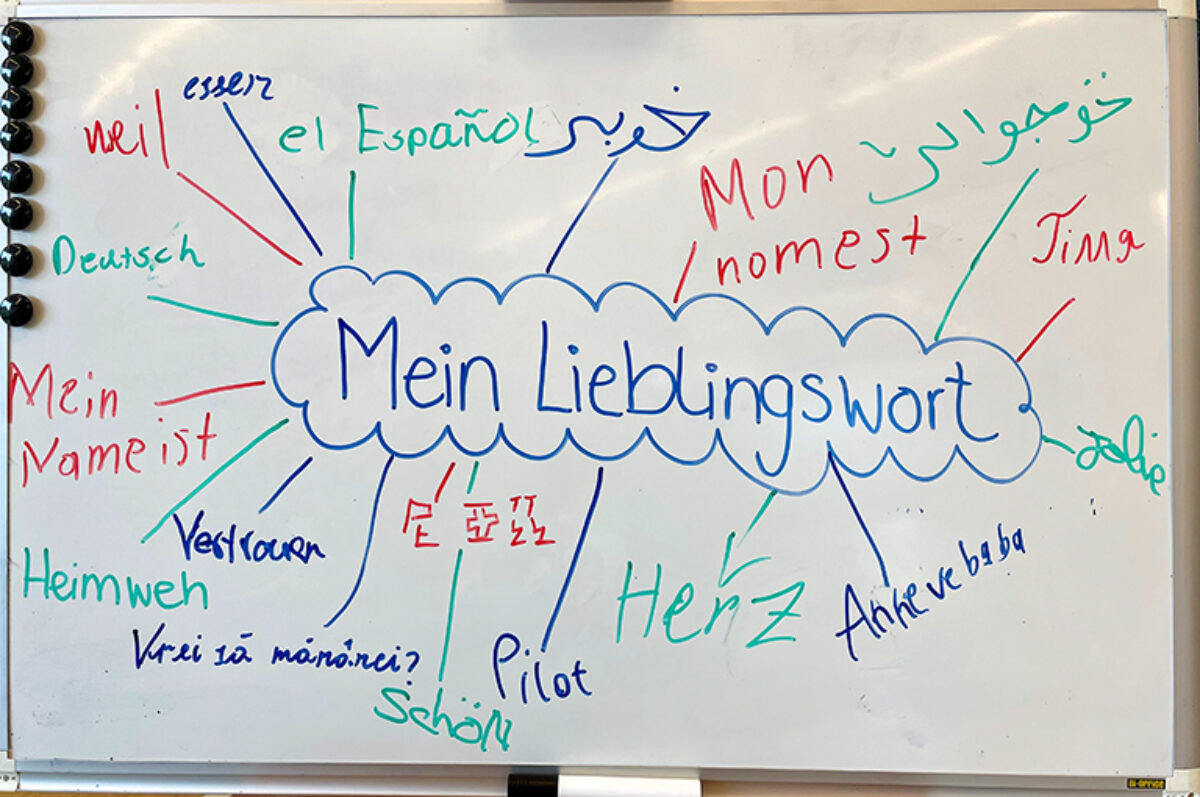 weil
essen
el Español
خوبی
Mon
nomest
Deutsch
Mein Lieblingswort
Mein
Name ist
Jolie
Vertrauen
Heimweh
Herz
Anne ve baba
Vrei să mănânci?
Pilot
Schön
BI-OFFICE